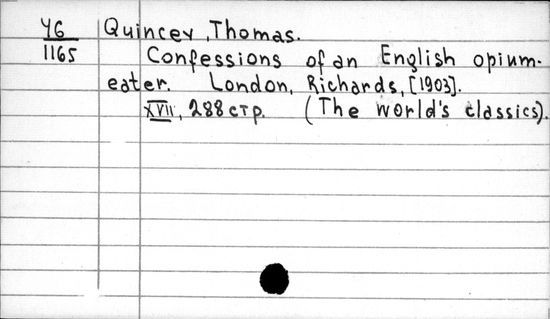 У6 Quincey, Thomas.
1165 Confessions of an English opium-
eater. London, Richards, [1903].
XVII, 288 стр. (The world's classics).